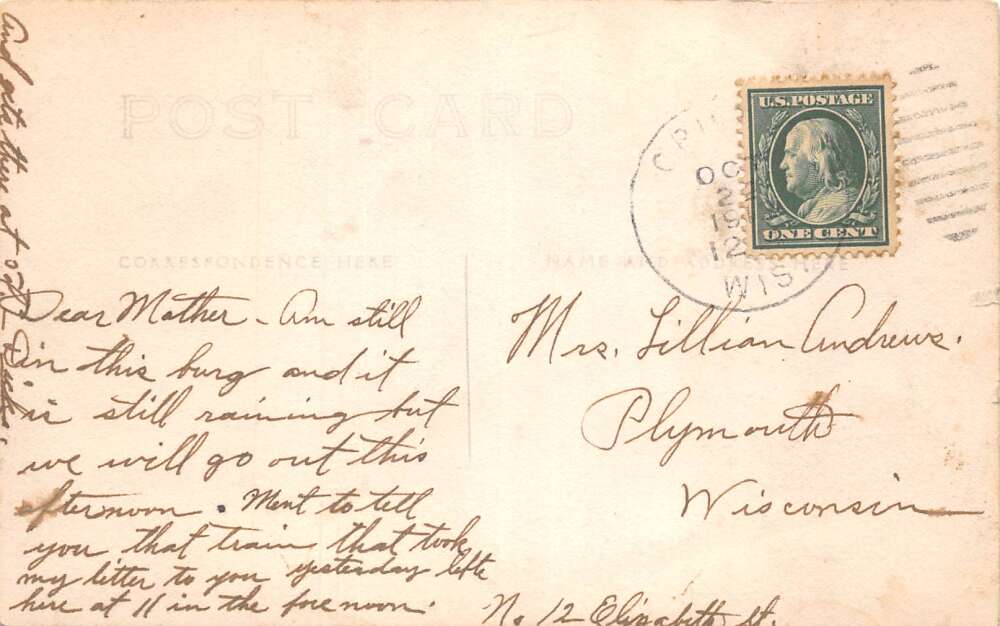 POST CARD
U.S. POSTAGE
ONE CENT
OCT
22
12
WIS
CORRESPONDENCE HERE
NAME AND ADDRESS HERE
Dear Mother - Am still
in this burg and it
is still raining but
we will go out this
afternoon. Ment to tell
you that train that took
my letter to you yesterday lefte
here at 11 in the fore noon.
And gets there at
Mrs. Lillian Andrews.
Plymouth
Wisconsin
No 12 Elizabeth st.